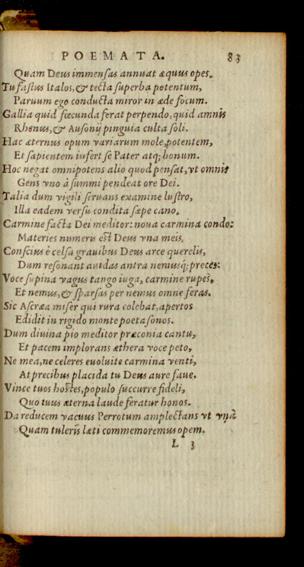 POEMATA. 83
Quam Deus immensas annuat æquus opes.
Tu fastus Italos, & tecta superba potentum,
Paruum ego conducta miror in æde focum.
Gallia quid fœcunda ferat perpendo, quid amnis
Rhenus, & Ausonij pinguia culta soli.
Hac æternus opum variarum mole potentem,
Et sapientem infert se Pater atq; bonum.
Hoc negat omnipotens alio quod pensat, vt omnis
Gens vno à summi pendeat ore Dei.
Talia dum vigili seruans examine lustro,
Illa eadem versu condita sæpe cano.
Carmine facta Dei meditor: noua carmina condo:
Materies numeris est Deus vna meis,
Conscius è celsa grauibus Deus arce querelis,
Dum resonant auidas antra nemusq; preces:
Voce supina vagus tango iuga, carmine rupes,
Et nemus, & sparsas per nemus omne feras.
Sic Ascræa miser qui rura colebat, apertos
Edidit in rigido monte poeta sonos.
Dum diuina pio meditor præconia cantu,
Et pacem implorans æthera voce peto,
Ne mea, ne celeres euoluite carmina venti,
At precibus placida tu Deus aure faue.
Vince tuos hostes, populo succurre fideli,
Quo tuus æterna laude feratur honos.
Da reducem vacuus Perrotum amplectans vt vnà
Quam tuleris læti commemoremus opem.
L 3